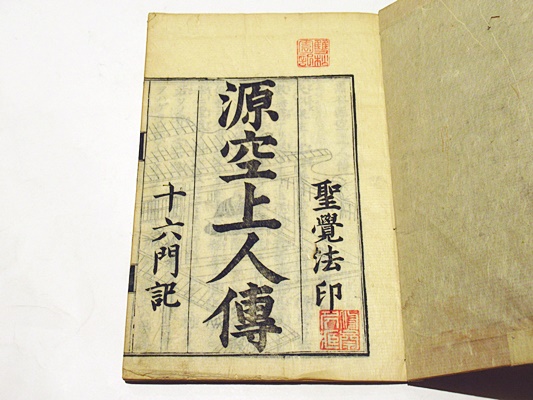 聖覺法印
源空上人傳
十六門記